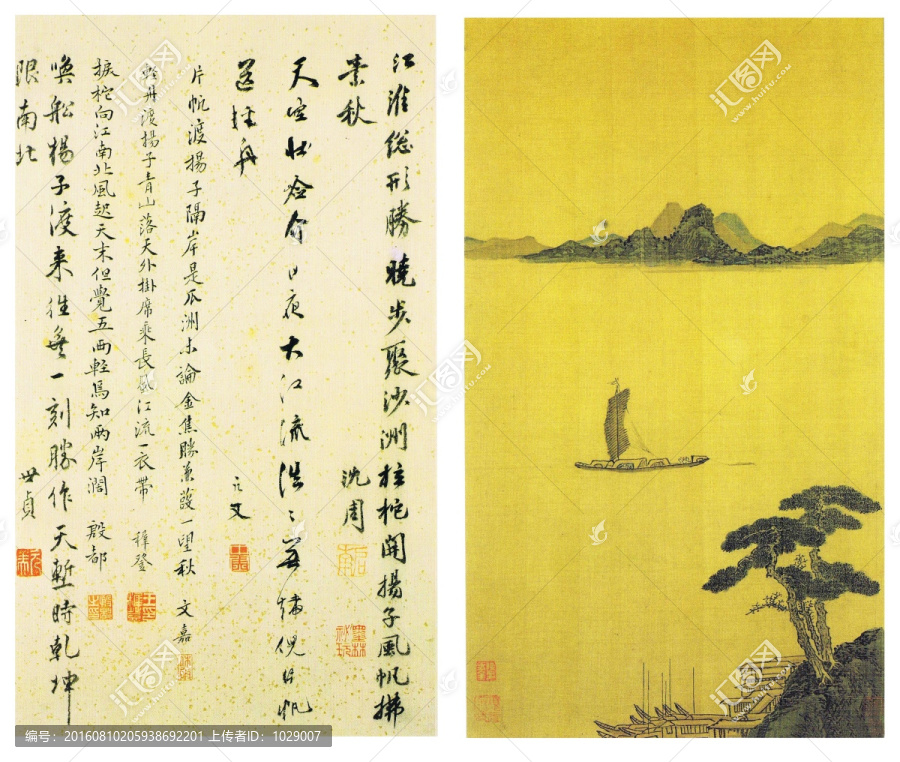 江淮総形勝曉步聚沙洲拄柁開揚子風帆拂
素秋 沈周
天空 日夜大江流浩〻 倪片帆
舟
片帆渡揚子隔岸是瓜洲未論金焦勝蒹葭一望秋 文嘉
輕舟渡揚子青山落天外掛席乘長風江流一衣帶 穉登
捩柁向江南北風起天末但覺五兩輕焉知兩岸濶 殷都
喚船楊子渡來往無一刻勝作天塹時乾坤
限南北 世貞
汇图网
www.huitu.com
编号：20160810205938692201 上传者ID：1029007